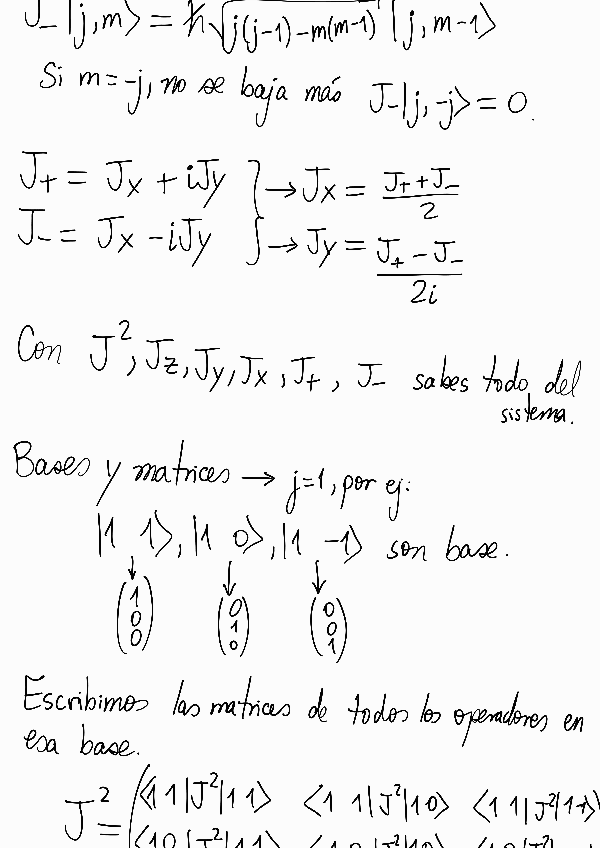 J₋ |j,m⟩ = ℏ√(j(j-1)-m(m-1)) |j, m-1⟩
Si m=-j, no se baja más J₋|j,-j⟩ = 0.
J₊ = Jx + iJy } → Jx = (J₊ + J₋)/2
J₋ = Jx - iJy } → Jy = (J₊ - J₋)/2i
Con J², Jz, Jy, Jx, J₊, J₋ sabes todo del
sistema.
Bases y matrices → j=1, por ej:
|1 1⟩, |1 0⟩, |1 -1⟩ son base.
↓ ↓ ↓
(1 0 0) (0 1 0) (0 0 1)
Escribimos las matrices de todos los operadores en
esa base.
J² = (⟨1 1|J²|1 1⟩ ⟨1 1|J²|1 0⟩ ⟨1 1|J²|1 -1⟩
⟨1 0|J²|1 1⟩